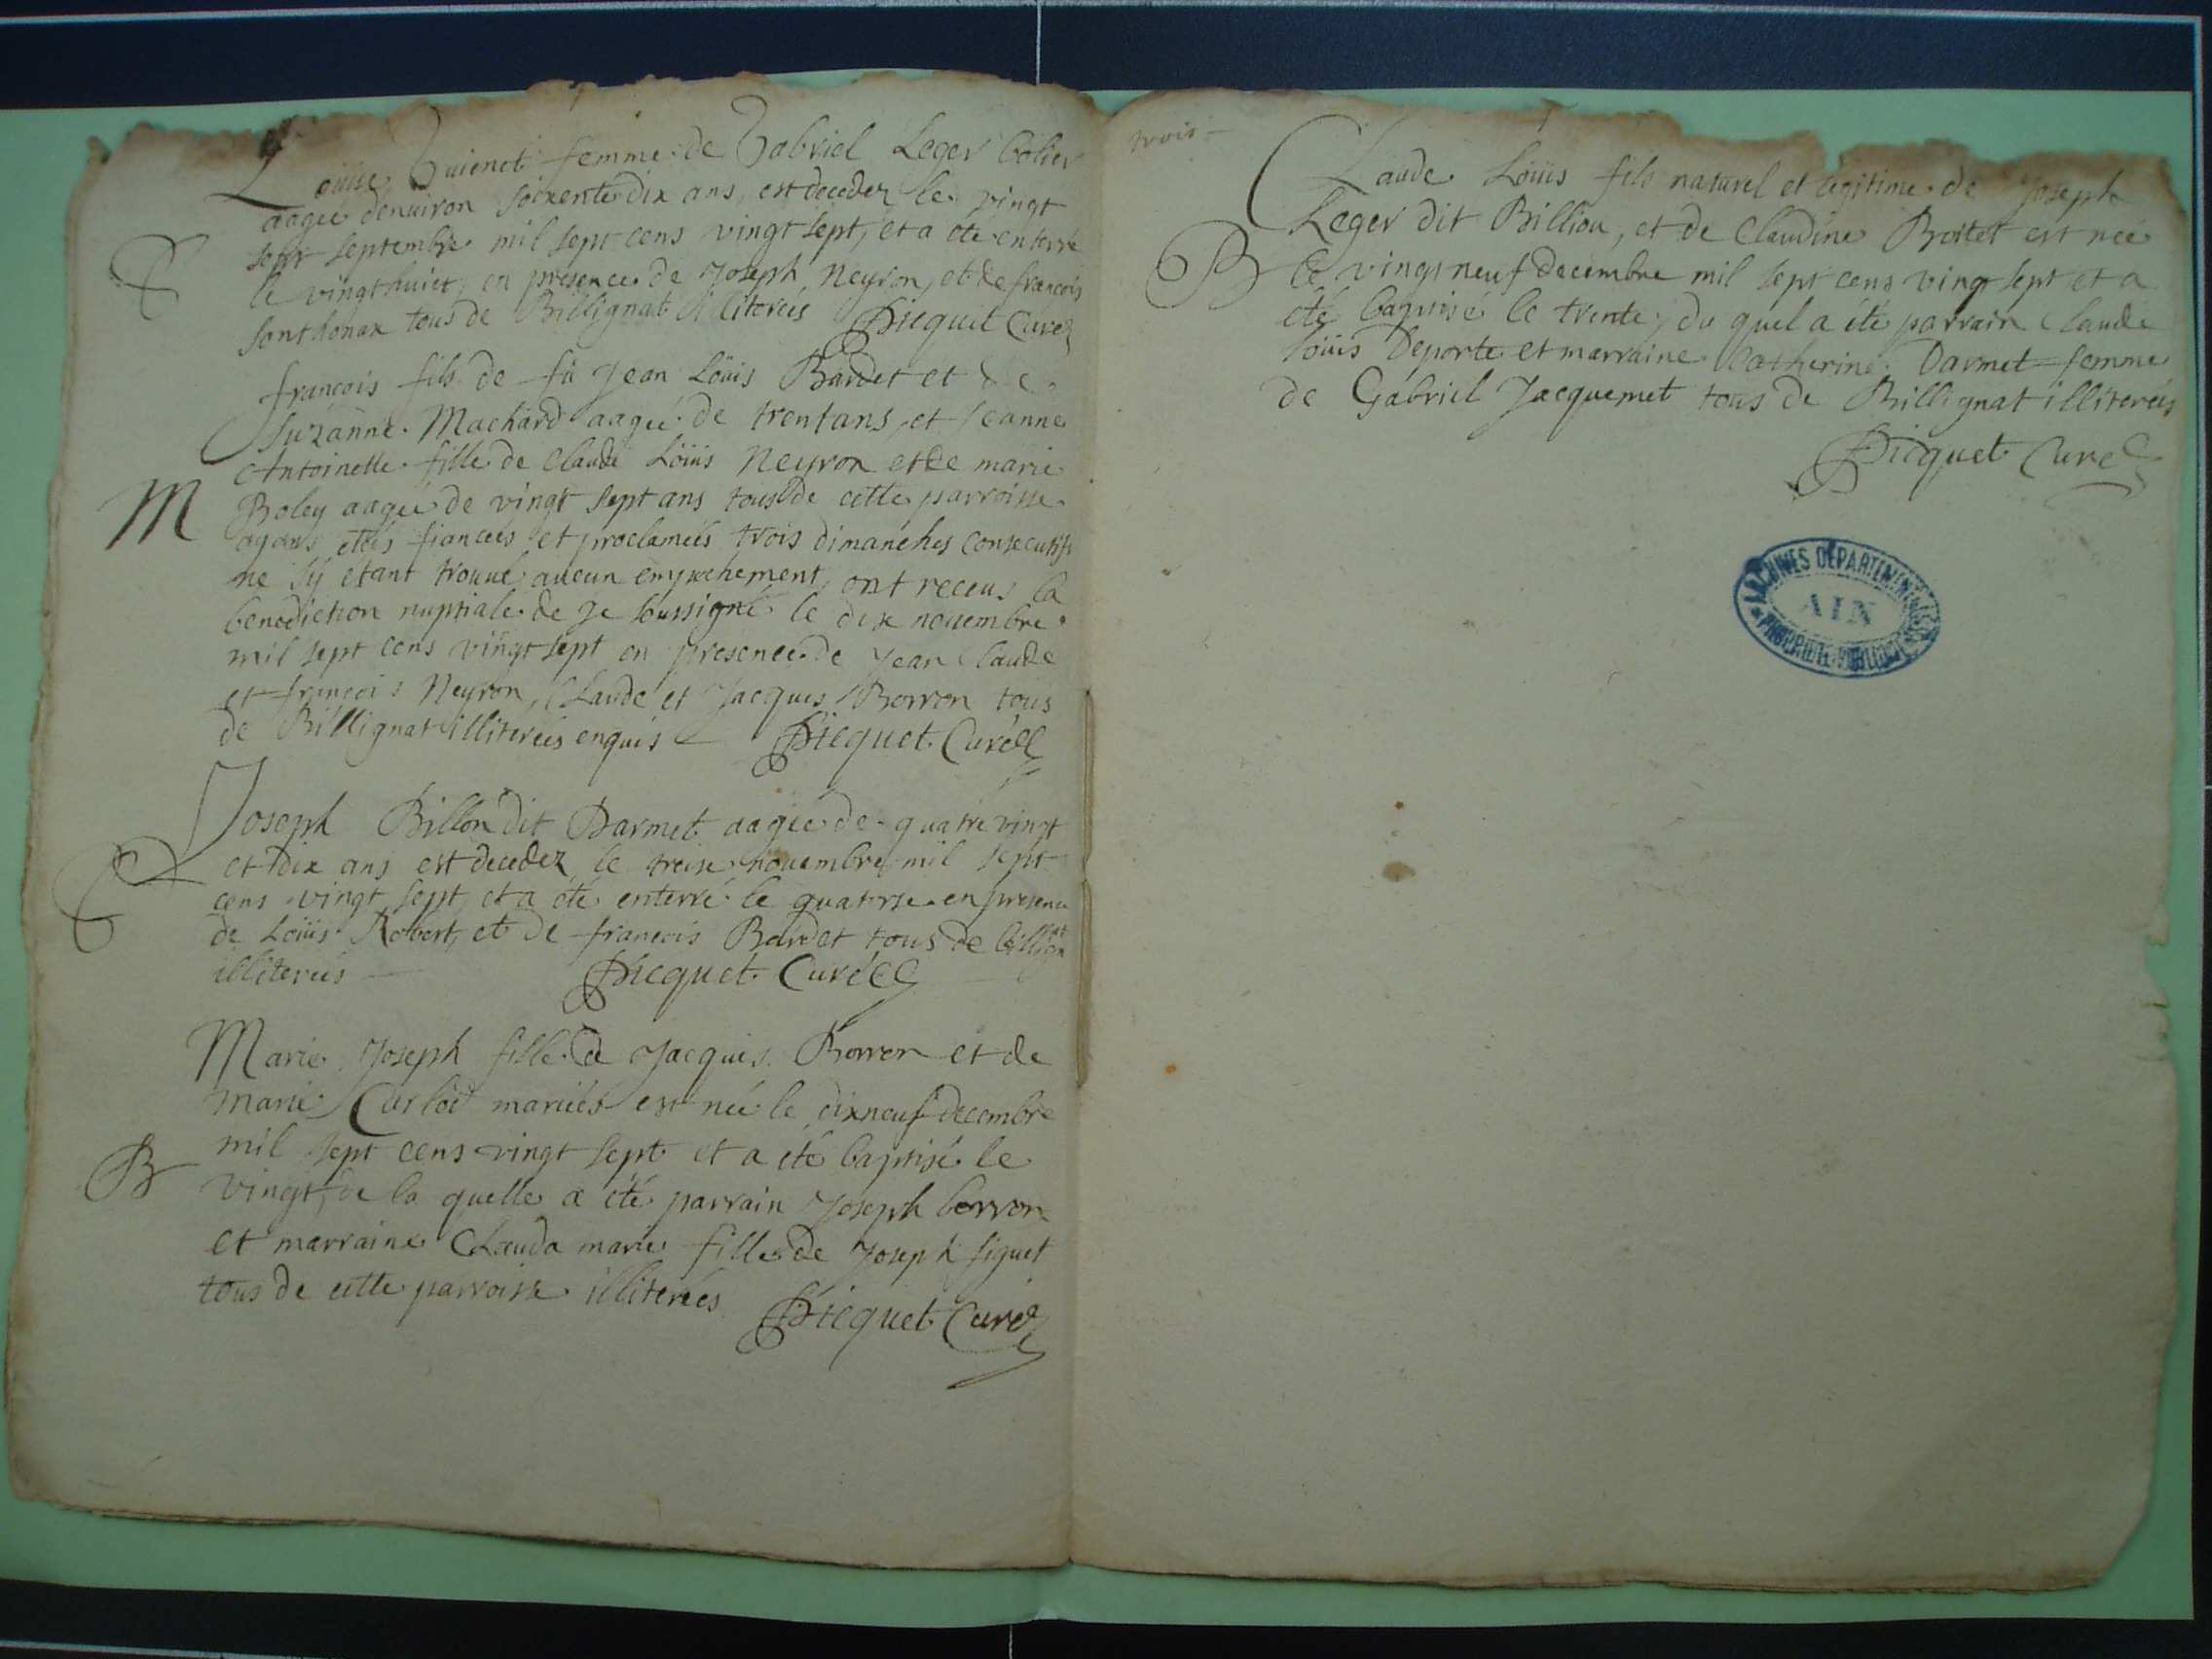 Louise Guienet femme de Gabriel Leger bolier
aagée denuiron soixente dix ans, est decedez le vingt
sept septembre mil sept cens vingt sept, et a ete enterré
le vingt huict, en presence de Joseph Neyron, et de francois
Sonthonax tous de Billignat illiterées Picquet Curé
françois fils de fû Jean Loüis Bardet et de
Suzanne Machard aagée de trent ans, et Jeanne
Antoinette fille de Claude Loüis Neyron et de marie
M
Boley aagée de vingt sept ans tous de cette parroisse
ayans etées fiancées et proclamées trois dimanches consecutifs
ne sÿ etant trouué aucun empechement, ont receus la
benediction nuptiale de je soussigné le dix nouembre
mil sept cens vingt sept en presence de Jean Claude
et françois Neyron, Claude et Jacques Borron tous
de Billignat illiterées enquis Picquet Curé
Joseph Billon dit Darmet aagée de quatre vingt
et dix ans est decedez le treise nouembre mil sept
cens vingt sept, et a eté enterré le quatorse en presence
de Loüis Robert, et de francois Bardet tous de billignat
illiterées Picquet Curé
Marie Joseph fille de Jacques Borron et de
marie Carlod mariées est née le dixneuf decembre
mil sept cens vingt sept et a eté baptisé le
B
vingt, de la quelle a été parrain Joseph borron
et marraine Clauda marie fille de Joseph siguet
tous de cette parroisse illiterées Picquet Curé
trois
Claude Loüis fils naturel et legitime de Joseph
Leger dit Billiou, et de Claudine Bottet est née
B
le vingt neuf decembre mil sept cens vingt sept et a
eté baptisé le trente, du quel a été parrain Claude
loüis Deporte et marraine Catherine Darmet femme
de Gabriel Jacquemet tous de Billignat illiterées
Picquet Curé
ARCHIVES DÉPARTEMENTALES
AIN
PROPRIÉTÉ PUBLIQUE